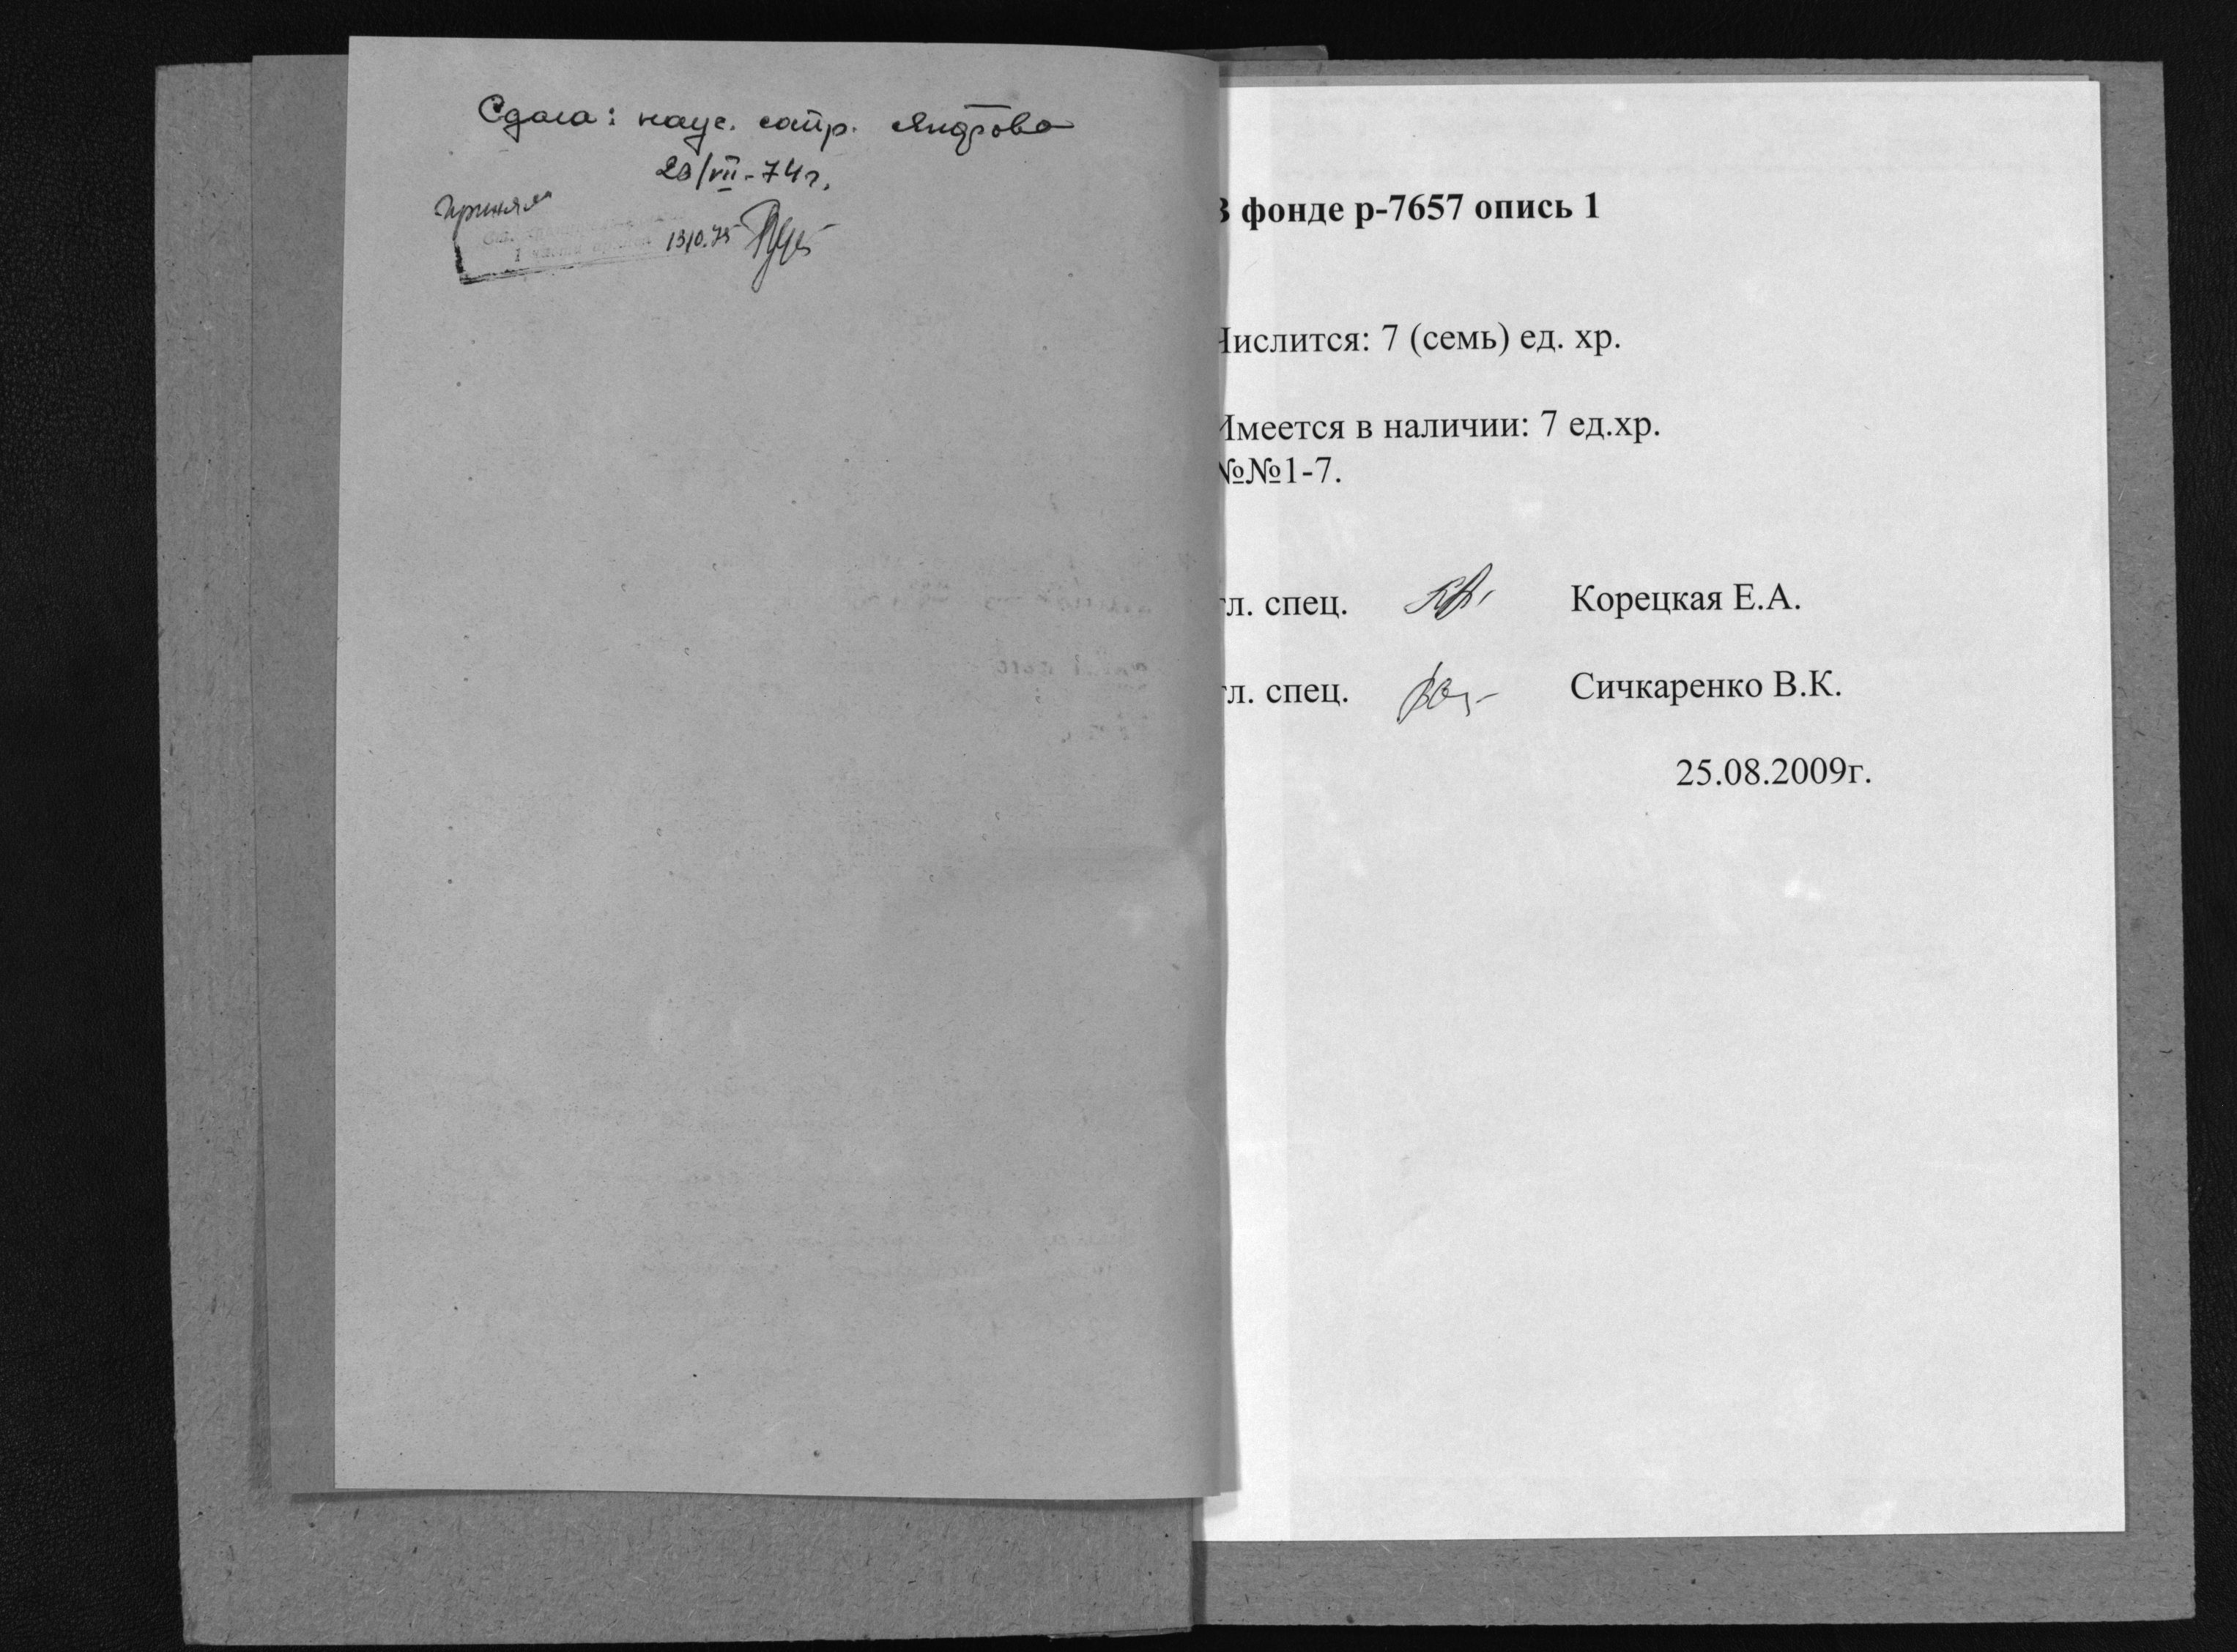 Сдала: науч. сотр.
/VII-74г.
Принял
13/0.75
В фонде р-7657 опись 1
Числится: 7 (семь) ед. хр.
Имеется в наличии: 7 ед.хр.
№№1-7.
гл. спец. Корецкая Е.А.
гл. спец. Сичкаренко В.К.
25.08.2009г.